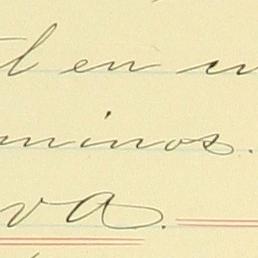 l en u
minos.
va.